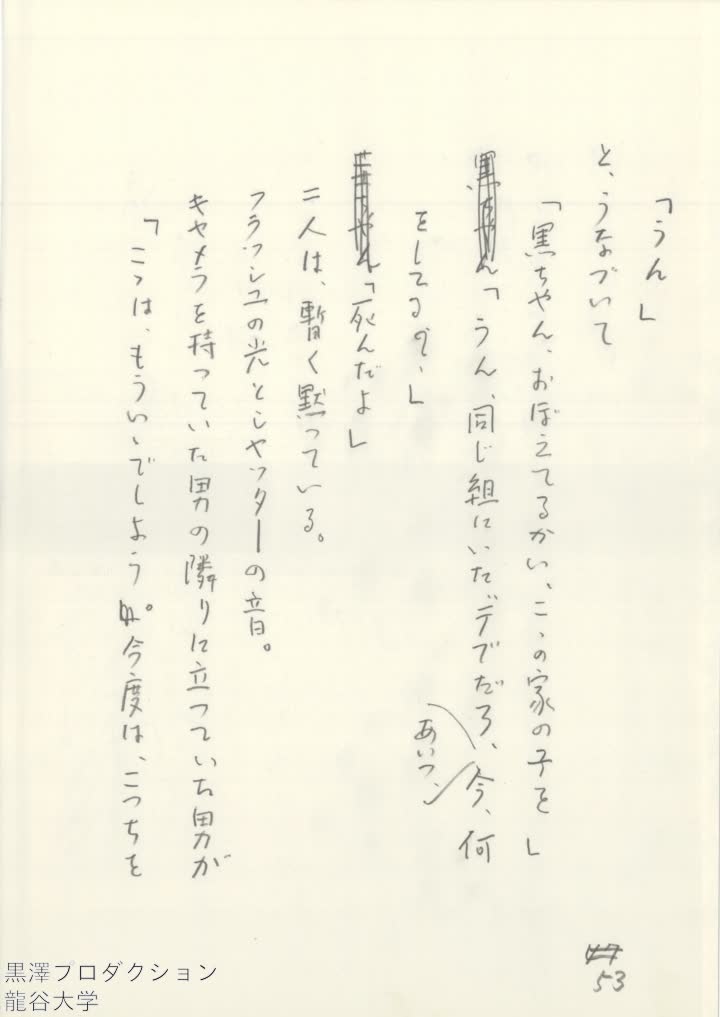 「うん」
と、うなづいて
「黒ちやん、おぼえてるかい、こゝの家の子を」
黒ちやん「うん、同じ組にいたデブだろ、今、何
あいつ、
をしてるの、」
「死んだよ」
二人は、暫く黙っている。
フラッシュの光とシャッターの音。
キャメラを持つていた男の隣りに立つていた男が
「こゝは、もういゝでしよう。今度は、こつちを
53
黒澤プロダクション
龍谷大学